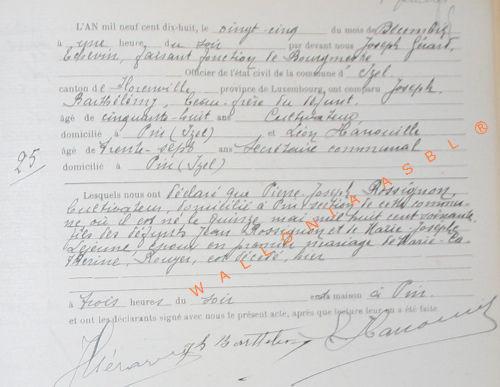 L'AN mil neuf cent dix-huit, le vingt cinq du mois de Décembre
à une heure, du soir par devant nous Joseph Gérard,
Echevin, faisant fonction de Bourgmestre
Officier de l'état civil de la commune d' Izel
canton de Florenville, province de Luxembourg, ont comparu Joseph
Barthélémy, beau-frère du défunt
âgé de cinquante-huit ans Cultivateur
domicilié à Pin (Izel) et Léon Hanouille
25
âgé de trente-sept ans Secrétaire communal
domicilié à Pin (Izel)
Lesquels nous ont déclaré que Pierre Joseph Rossignon,
Cultivateur, domicilié à Pin section de cette commu-
ne où il est né le quinze mai mil huit cent soixante
fils des défunts Jean Rossignon et de Marie-Joseph
Lejeune, époux en premier mariage de Marie-Ca-
therine, Rouyer, est décédé hier
à trois heures du soir en sa maison à Pin.
et ont les déclarants signé avec nous le présent acte, après que lecture leur en a été faite
WALLONIA ASBL ®